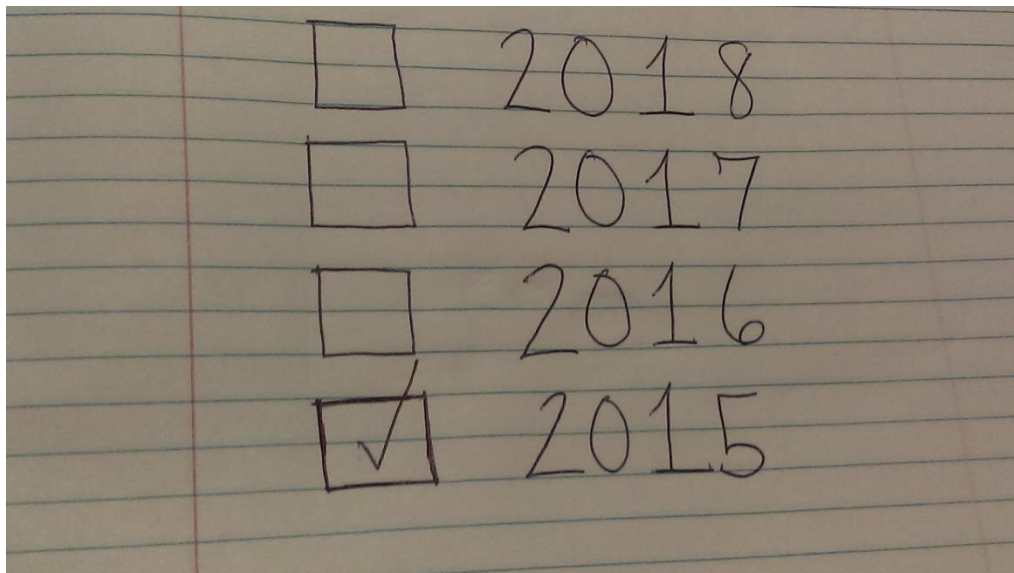 2018
2017
2016
2015